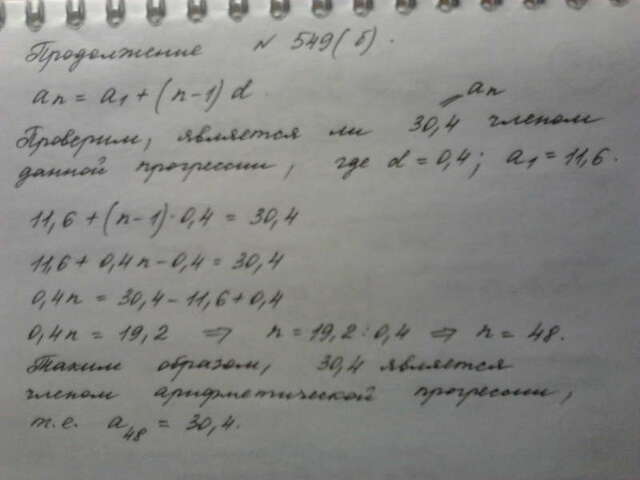 Продолжение № 549(б).
an = a1 + (n-1) d.
Проверим, является ли 30,4 членом
= an
данной прогрессии, где d = 0,4; a1 = 11,6.
11,6 + (n-1)·0,4 = 30,4
11,6 + 0,4n - 0,4 = 30,4
0,4n = 30,4 - 11,6 + 0,4
0,4n = 19,2 ⇒ n = 19,2 : 0,4 ⇒ n = 48.
Таким образом, 30,4 является
членом арифметической прогрессии,
т.е. a48 = 30,4.